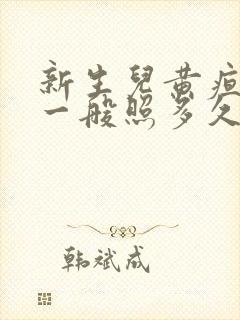 新生兒黄疸
一般照多久
韩斌成